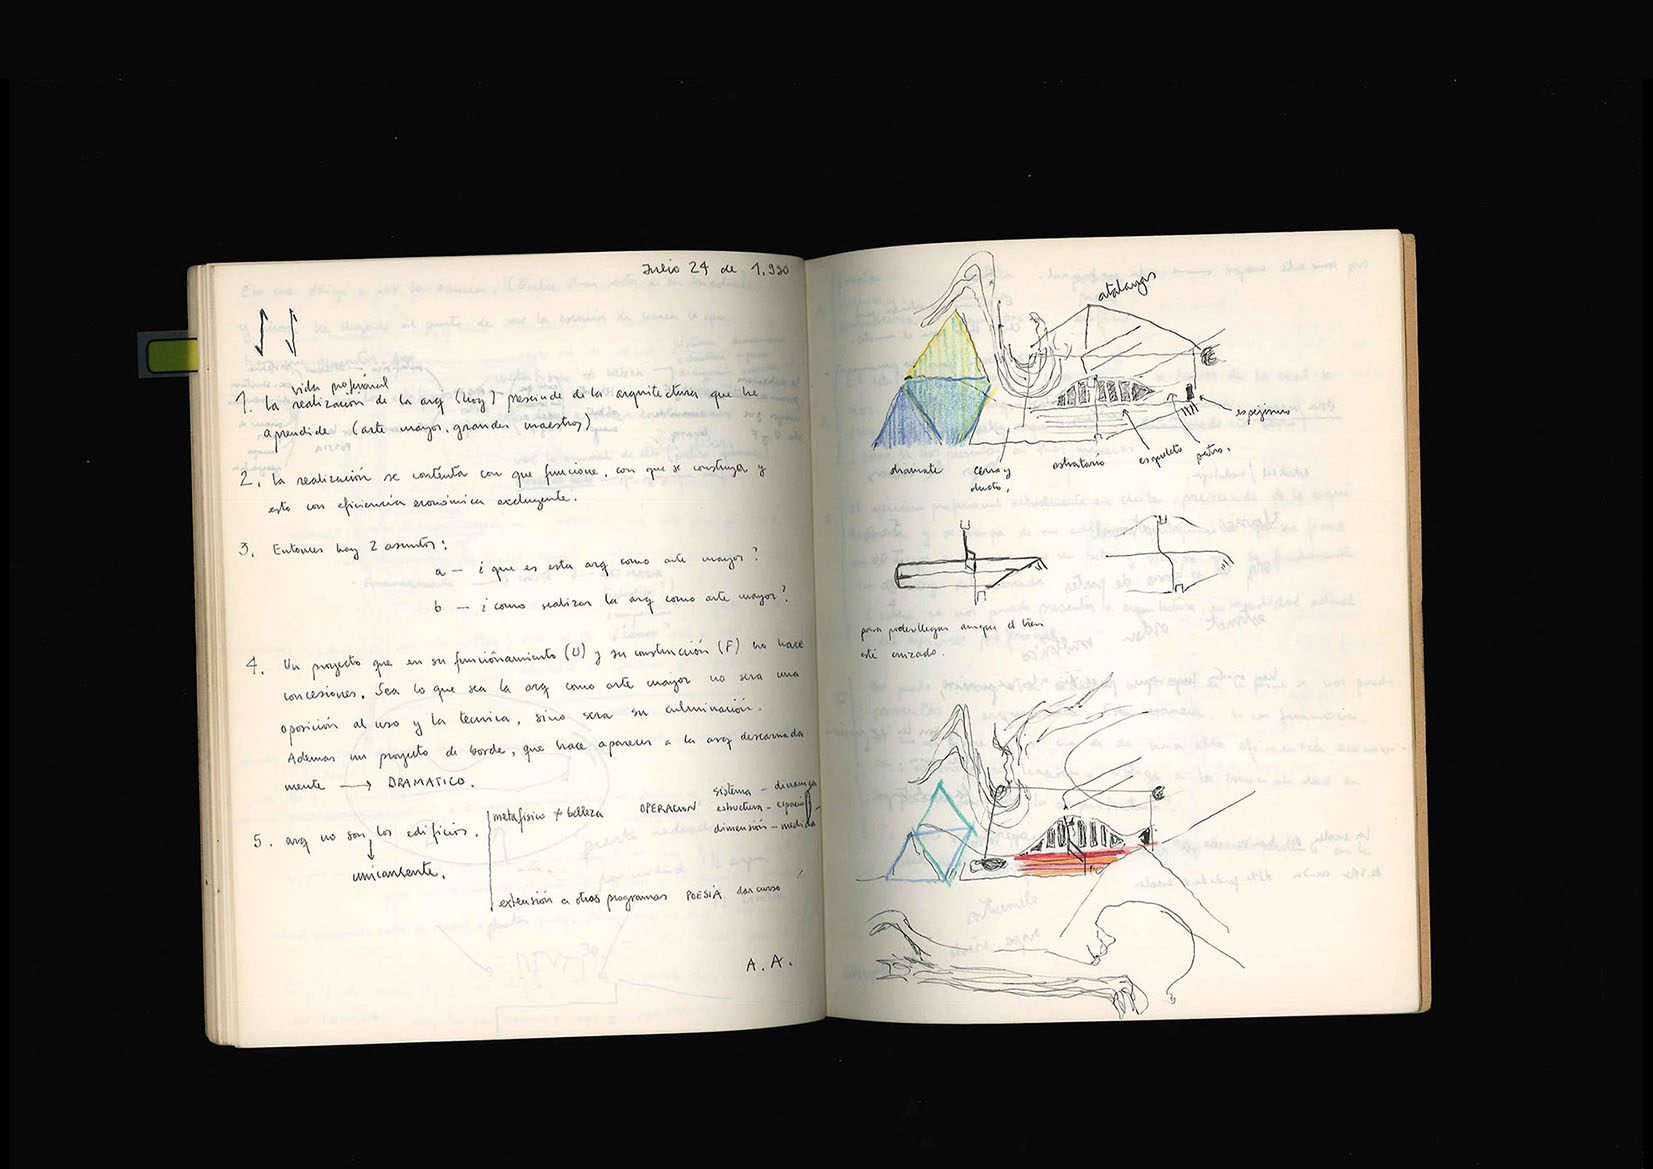 Julio 24 de 1.990
vida profesional
1. La realización de la arq (hoy) prescinde de la arquitectura que he
aprendido (arte mayor, grandes maestros)
2. La realización se contenta con que funcione, con que se construya y
esto con eficiencia económica excluyente.
3. Entonces hay 2 asuntos:
a — ¿que es esta arq como arte mayor?
b — ¿como realizar la arq como arte mayor?
4. Un proyecto que en su funcionamiento (U) y su construcción (F) no hace
concesiones. Sea lo que sea la arq como arte mayor no sera una
oposición al uso y la tecnica, sino sera su culminación.
Ademas un proyecto de borde, que hace aparecer a la arq descarnada
mente → DRAMATICO.
5. arq no son los edificios.
unicamente.
metafisico ≠ belleza OPERACION
sistema —
estructura — espacio
dimensión — medida
extensión a otros programas POESIA dar curso ?
A.A.
atalayas
espejismo
dramate
cerro y
ducto,
estratario
esqueleto
patro.
para poder llegar aunque el tren
esté cruzado.